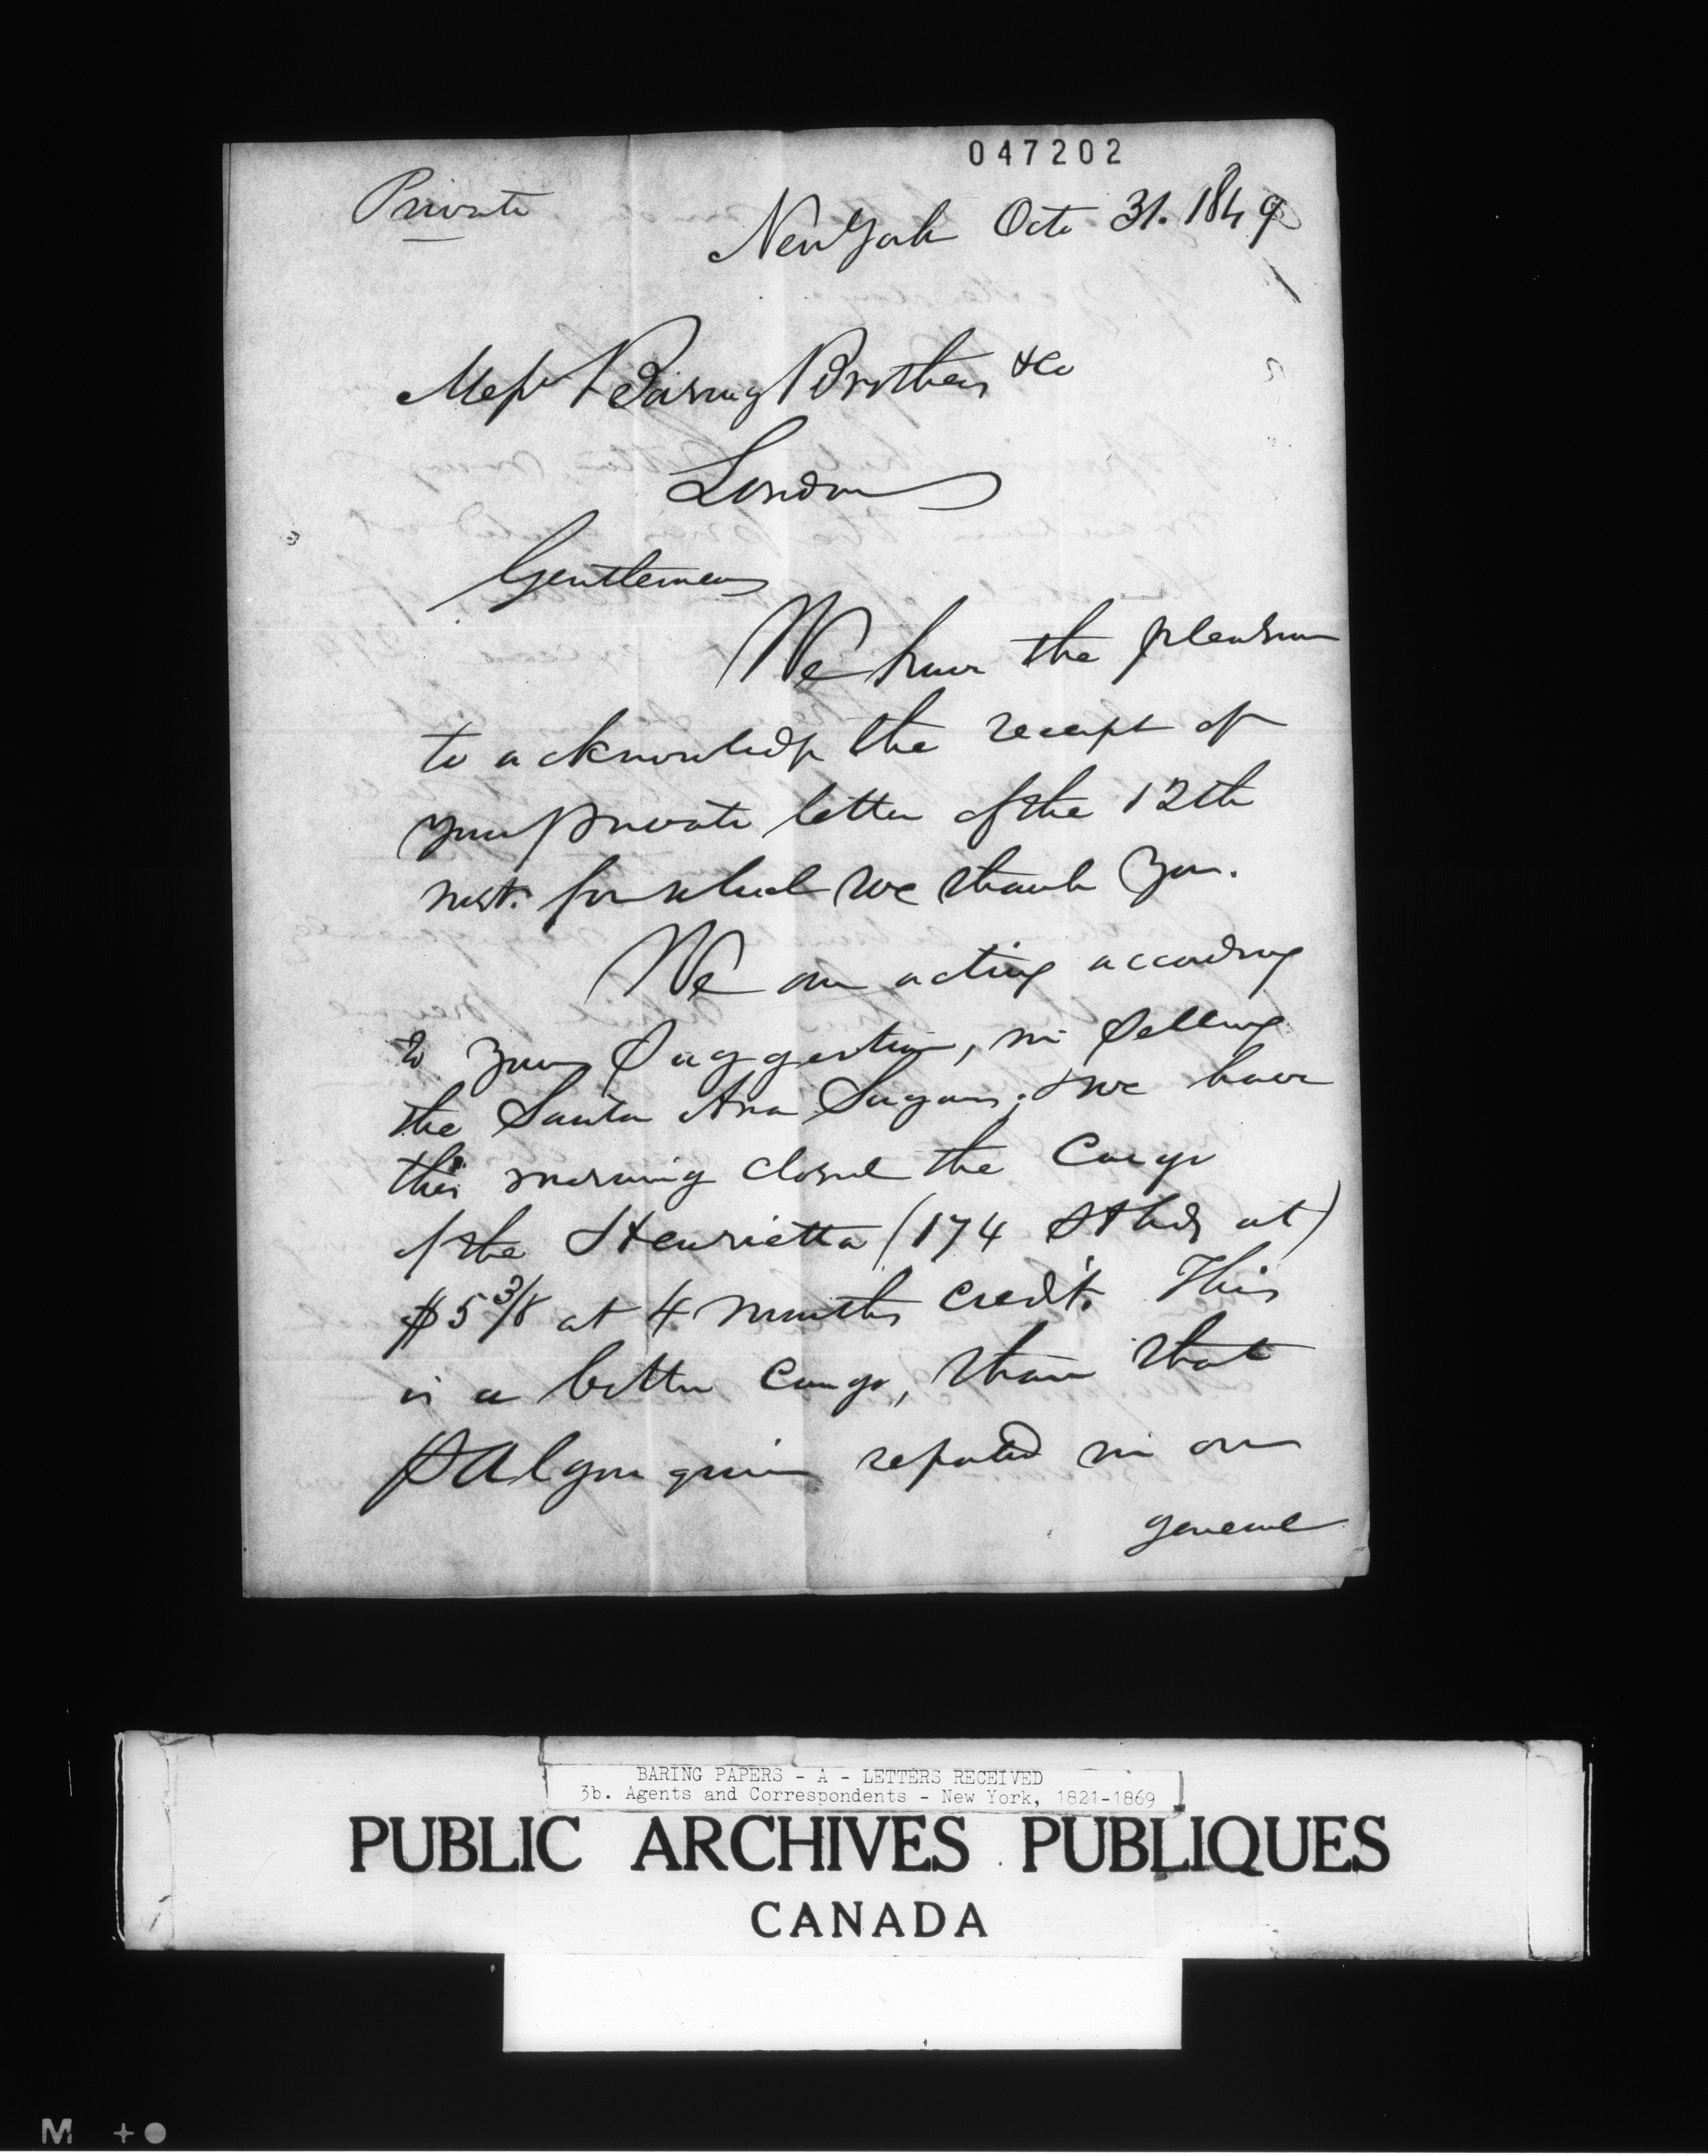 047202
Private
New York Octo 31. 1849
Messrs Baring Brothers & Co
London
Gentlemen
We have the pleasure
to acknowledge the receipt of
your private letter of the 12th
inst. for which we thank you.
We are acting according
to your suggestion, in selling
the Santa Ana Sugars. & we have
this morning closed the Cargo
of the Henrietta (174 Hhds at)
$5 3/8 at 4 months credit. This
is a better Cargo, than that
p Algonquin reported in our
general
BARING PAPERS - A - LETTERS RECEIVED
3b. Agents and Correspondents - New York, 1821-1869
PUBLIC ARCHIVES PUBLIQUES
CANADA
M +